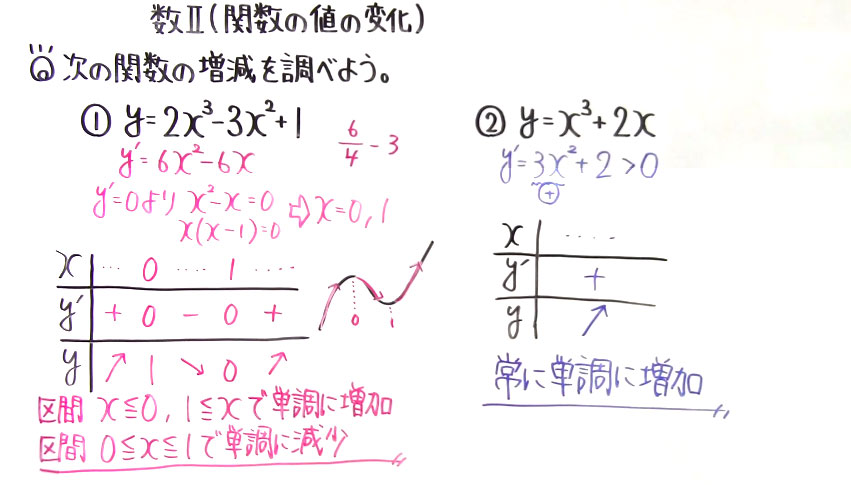 数Ⅱ(関数の値の変化)
問 次の関数の増減を調べよう。
① y=2x³-3x²+1
6/4 - 3
y'=6x²-6x
y'=0より x²-x=0 ⇒ x=0,1
x(x-1)=0
x | … 0 … 1 …
y' | + 0 - 0 +
y | ↗ 1 ↘ 0 ↗
0 1
区間 x≦0, 1≦xで単調に増加
区間 0≦x≦1で単調に減少
② y=x³+2x
y'=3x²+2>0
+
x | …
y' | +
y | ↗
常に単調に増加